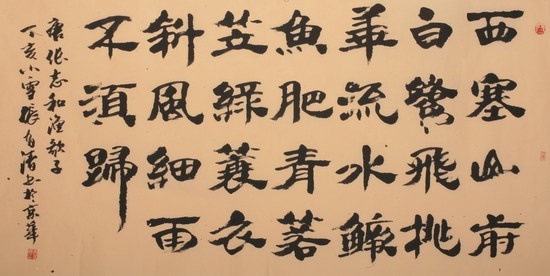 西塞山前
白鷺飛桃
華流水鱖
魚肥青箬
笠綠蓑衣
斜風細雨
不須歸
唐張志和漁歌子
丁亥小雪張有清書於京華